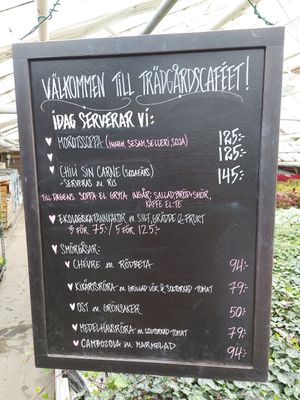 VÄLKOMMEN TILL TRÄDGÅRDSCAFÉET!
IDAG SERVERAR VI:
MOROTSSOPPA (INNEH. SESAM, SELLERI, SOJA) 125:-
125:-
CHILI SIN CARNE (SOJAFÄRS) 145:-
- SERVERAS M. RIS
TILL DAGENS SOPPA EL. GRYTA INGÅR: SALLAD, BRÖD & SMÖR,
KAFFE EL. TE
EKOLOGISKA PANNKAKOR M. SYLT, GRÄDDE & FRUKT
3 FÖR 75:- / 5 FÖR 125:-
SMÖRGÅSAR:
CHÈVRE M. RÖDBETA 94:-
KIKÄRTSRÖRA M. GRILLAD LÖK & SOLTORKAD TOMAT 79:-
OST M. GRÖNSAKER 50:-
MEDELHAVSRÖRA M. SOLTORKAD TOMAT 79:-
CAMBOZOLA M. MARMELAD 94:-